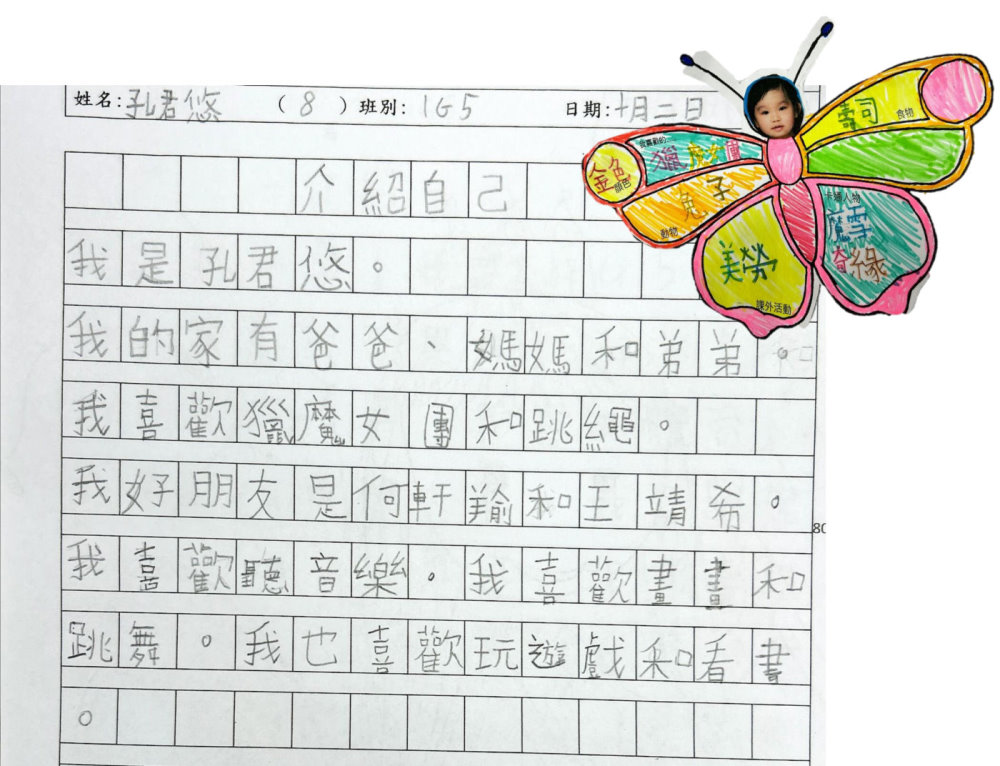 姓名:孔君悠 (8) 班別: 1G5 日期:十月二日
介紹自己
我是孔君悠。
我的家有爸爸、媽媽和弟弟。
我喜歡獵魔女團和跳繩。
我好朋友是何軒羭和王靖希。
我喜歡聽音樂。我喜歡畫畫和
跳舞。我也喜歡玩遊戲和看書
。
80
壽司
食物
金色
顏色
獵魔女團
兔子
動物
卡通人物
魔雪
奇緣
美勞
課外活動